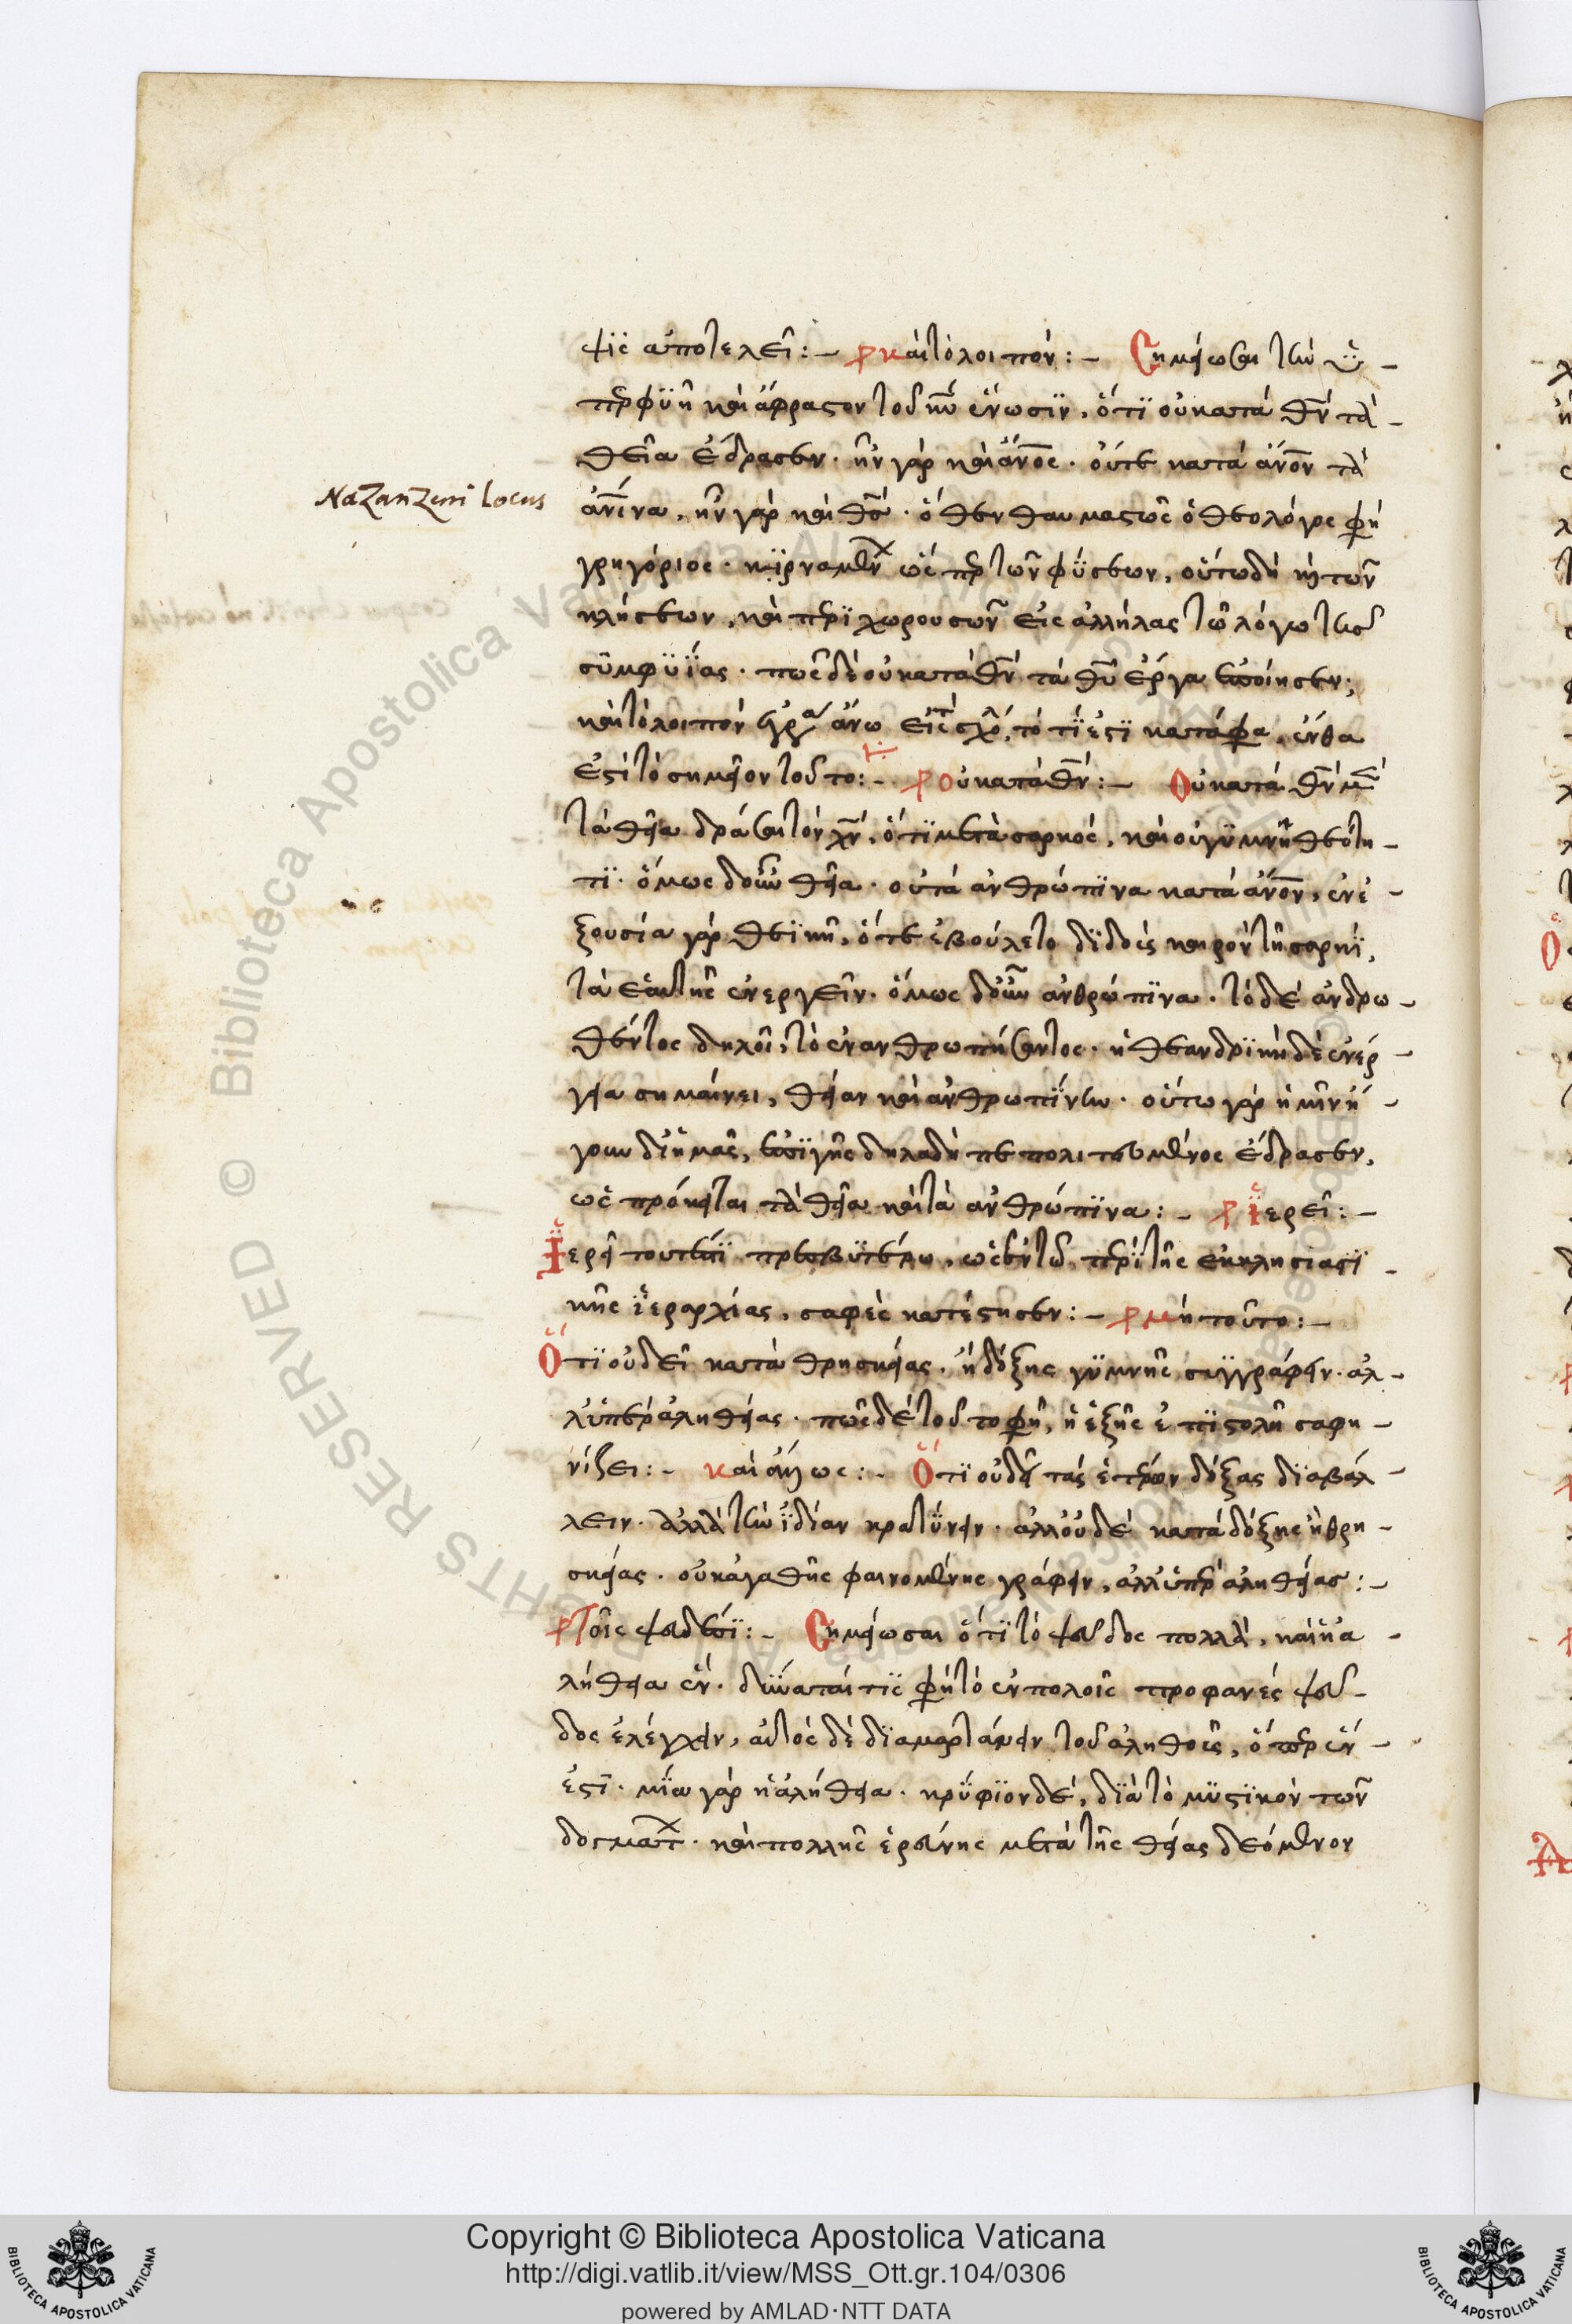 ψις ἀποτελεῖ:– καὶ τὸ λοιπόν:– Σημείωσαι τὴν ὑ–
περφυῆ καὶ ἄφραστον τοῦ κυ ἕνωσιν, ὅτι οὐ κατὰ θν τὰ
θεῖα ἔδρασεν. ἦν γὰρ καὶ ανος. οὔτε κατὰ ανον τὰ
ανινα, ἦν γὰρ καὶ θς. ὅθεν θαυμαστῶς ὁ θεολόγος φη
Nazanzeni Locus
γρηγόριος. κιρναμεν ὥσπερ τῶν φύσεων, οὕτω δὴ καὶ τῶν
κλήσεων, καὶ περιχωρουσῶν εἰς ἀλλήλας τῷ λόγῳ τῆς
συμφυΐας. πῶς δὲ οὐ κατὰ θν τὰ θυ ἔργα ἐποίησεν;
καὶ τὸ λοιπὸν ἄνω εἰς σχό, τὸ τί ἐστι κατάφα, ἔνθα
ἐστὶ τὸ σημεῖον τοῦτο:– οὐ κατὰ θν:– Οὐ κατὰ θν μὲν
τὰ θεῖα δρᾶσαι τὸν χν, ὅτι μετὰ σαρκός, καὶ οὐ γυμνῇ θεότη–
τι. ὅμως δ' οὖν θεῖα. οὐ τὰ ανθρώπινα κατὰ ανον, ἐν ἐ–
ξουσία γὰρ θεϊκῆ, ὅτε ἐβούλετο διδοὺς καιρὸν τῇ σαρκί,
τὰ ἑαυτῆς ἐνεργεῖν. ὅμως δ' οὖν ἀνθρώπινα. τὸ δὲ ἀνδρω–
θέντος δηλοῖ, τὸ ἐνανθρωπήσαντος. ἡ θεανδρικὴ δὲ ἐνέρ–
γεια σημαίνει, θείαν καὶ ἀνθρωπίνην. οὕτω γὰρ ἡμῖν ἤ–
γουν δι' ἡμᾶς, ἐπὶ γῆς δηλαδὴ πεπολιτευμένος ἔδρασεν,
ὡς πρόκειται τὰ θεῖα καὶ τὰ ἀνθρώπινα:– ἱερεῖ:–
Ἱερεῖ τουτέστι πρεσβυτέρω, ὡς ἐν τῷ περὶ τῆς ἐκκλησιαστι–
κῆς ἱεραρχίας, σαφὲς κατέστησεν:– μὴ τοῦτο:–
Ὅτι οὐ δεῖ κατὰ θρησκείας, ἢ δόξης γυμνῆς συγγράφειν. ἀλ–
λ' ὑπὲρ ἀληθείας. πῶς δὲ τοῦτό φη, ἡ ἑξῆς ἐπιστολὴ σαφη–
νίζει:– καὶ ἄλλως:– Ὅτι οὐ δεῖ τὰς ἑτέρων δόξας διαβάλ–
λειν. ἀλλὰ τὴν ἰδίαν κρατύνειν. ἀλλ' οὐδὲ κατὰ δόξης ἢ θρη–
σκείας. οὐκ ἀγαθῆς φαινομένης γράφειν, ἀλλ' ὑπὲρ ἀληθείας:–
Τοῖς ψευδέσι:– Σημείωσαι ὅτι τὸ ψεῦδος πολλὰ, καὶ ἡ ἀ–
λήθεια ἕν. δύναταί τις φη τὸ ἐν πολοῖς προφανὲς ψεῦ–
δος ἐλέγχειν, αὐτὸς δὲ διαμαρτάνειν τοῦ ἀληθοῦς, ὅπερ ἕν–
ἐστι. μία γὰρ ἡ ἀλήθεια. κρύφιον δὲ, διὰ τὸ μυστικὸν τῶν
δογματ. καὶ πολλῆς ἐρεύνης μετὰ τῆς θείας δεόμενον
Copyright © Biblioteca Apostolica Vaticana
http://digi.vatlib.it/view/MSS_Ott.gr.104/0306
powered by AMLAD·NTT DATA